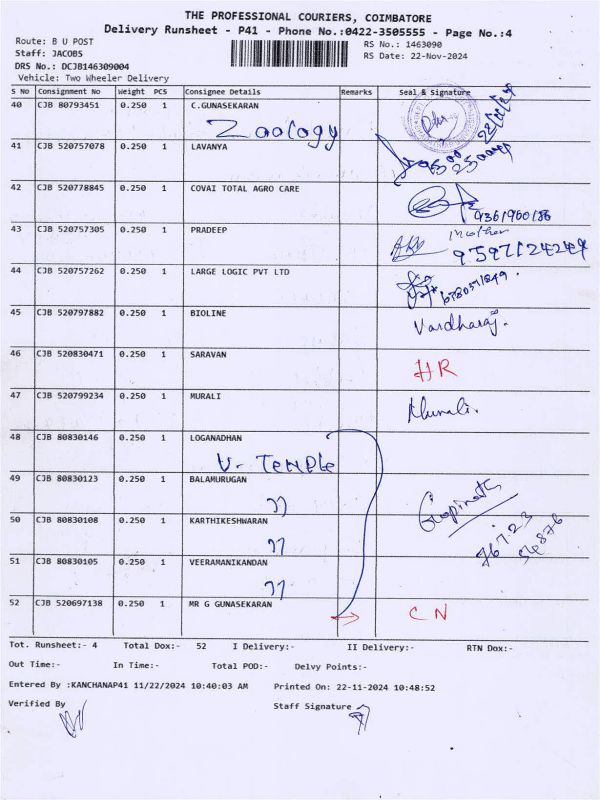 THE PROFESSIONAL COURIERS, COIMBATORE
Delivery Runsheet - P41 - Phone No.:0422-3505555 - Page No.:4
Route: B U POST
RS No.: 1463090
Staff: JACOBS
RS Date: 22-Nov-2024
DRS No.: DCJB146309004
Vehicle: Two Wheeler Delivery
S No Consignment No Weight PCS Consignee Details Remarks Seal & Signature
40 CJB 80793451 0.250 1 C.GUNASEKARAN
Zoology
41 CJB 520757078 0.250 1 LAVANYA
42 CJB 520778845 0.250 1 COVAI TOTAL AGRO CARE
43 CJB 520757305 0.250 1 PRADEEP
Mother
9597124249
44 CJB 520757262 0.250 1 LARGE LOGIC PVT LTD
45 CJB 520797882 0.250 1 BIOLINE
Vardharaj.
46 CJB 520830471 0.250 1 SARAVAN
HR
47 CJB 520799234 0.250 1 MURALI
Murali.
48 CJB 80830146 0.250 1 LOGANADHAN
V- TEMPLE
49 CJB 80830123 0.250 1 BALAMURUGAN
''
Gopinath
50 CJB 80830108 0.250 1 KARTHIKESHWARAN
''
76723
51 CJB 80830105 0.250 1 VEERAMANIKANDAN
''
52 CJB 520697138 0.250 1 MR G GUNASEKARAN
CN
Tot. Runsheet:- 4 Total Dox:- 52 I Delivery:- II Delivery:- RTN Dox:-
Out Time:- In Time:- Total POD:- Delvy Points:-
Entered By :KANCHANAP41 11/22/2024 10:40:03 AM Printed On: 22-11-2024 10:48:52
Verified By Staff Signature